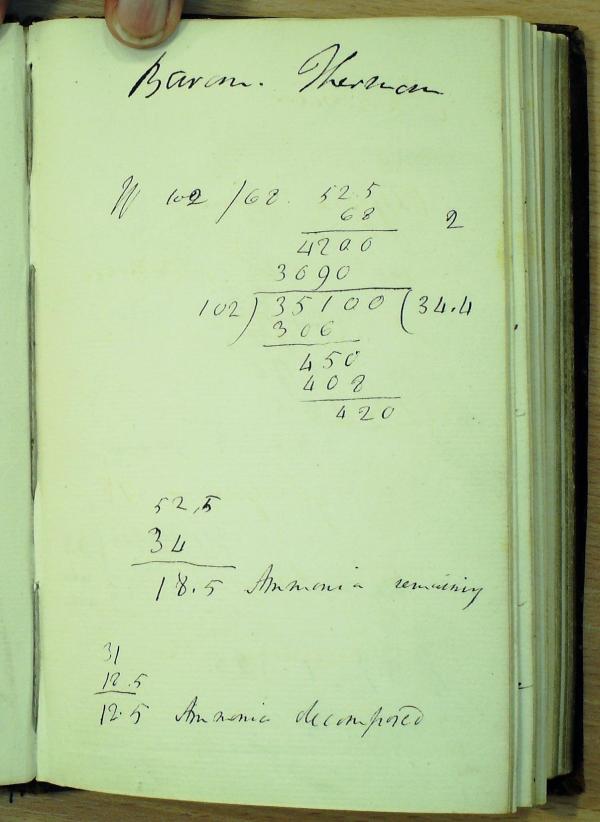 Barom. Thermom
If 102 / 68. 52.5
68 2
4200
3090
102 ) 35100 ( 34.4
306
450
408
420
52,5
34
18.5 Ammonia remaining
31
18.5
12.5 Ammonia decomposed